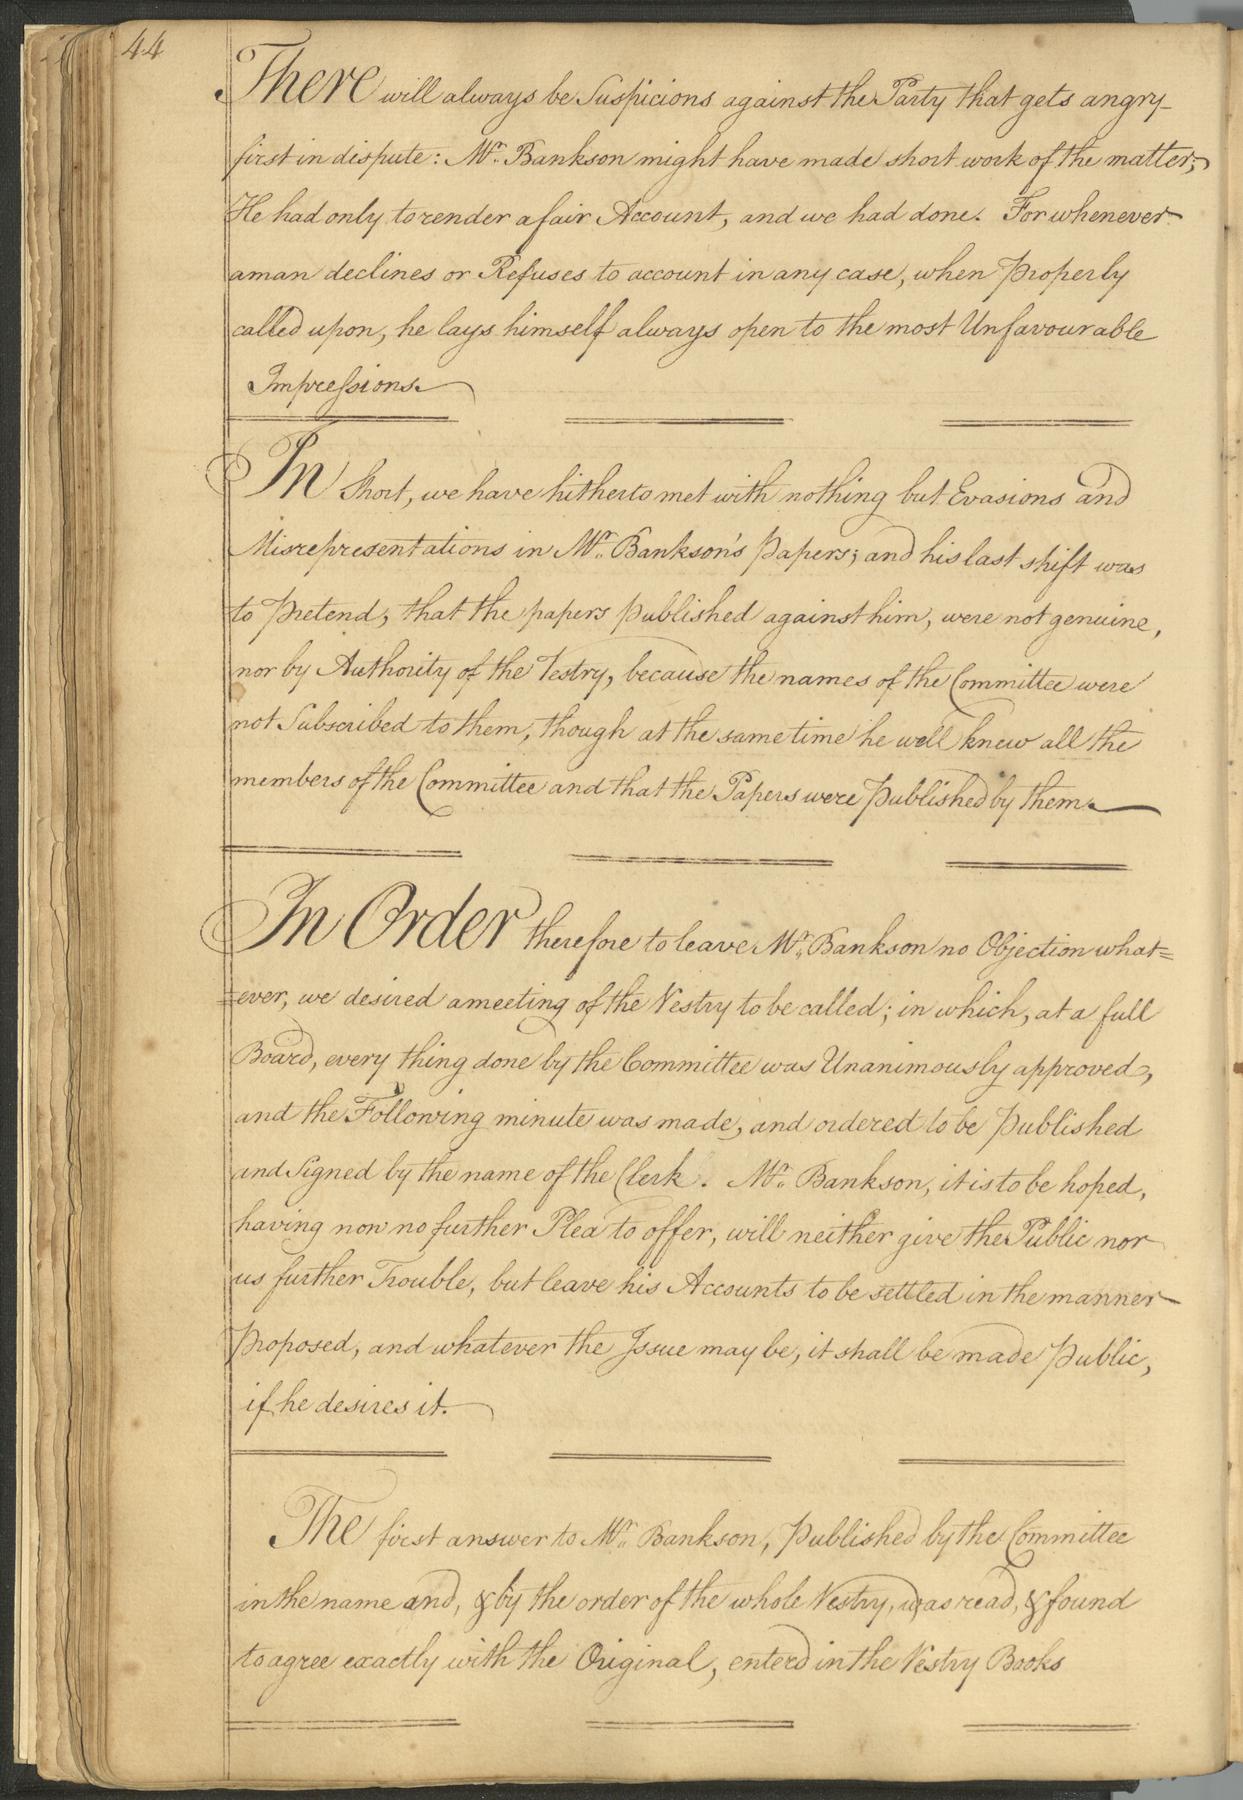 44
There will always be Suspicions against the Party that gets angry
first in dispute: Mr. Bankson might have made short work of the matter;
He had only to render a fair Account, and we had done. For whenever
a man declines or Refuses to account in any case, when Properly
called upon, he lays himself always open to the most Unfavourable
Impressions.
In Short, we have hitherto met with nothing but Evasions and
Misrepresentations in Mr. Bankson's Papers; and his last shift was
to Pretend, that the papers Published against him, were not genuine,
nor by Authority of the Vestry, because the names of the Committee were
not Subscribed to them, though at the same time he well knew all the
members of the Committee and that the Papers were Published by them.
In Order therefore to leave Mr. Bankson no Objection what=
=ever, we desired a meeting of the Vestry to be called; in which, at a full
Board, every thing done by the Committee was Unanimously approved,
and the Following minute was made, and ordered to be Published
and Signed by the name of the Clerk. Mr. Bankson, it is to be hoped,
having now no further Plea to offer, will neither give the Public nor
us further Trouble, but leave his Accounts to be settled in the manner
Proposed, and whatever the Issue may be, it shall be made Public,
if he desires it.
The first answer to Mr. Bankson, Published by the Committee
in the name and, & by the order of the whole Vestry, was read, & found
to agree exactly with the Original, enterd in the Vestry Books